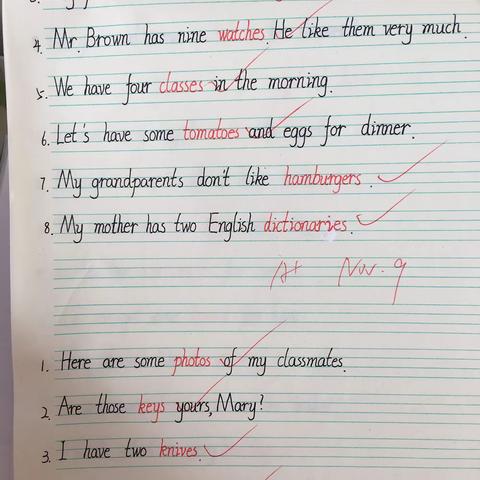 4. Mr. Brown has nine watches. He like them very much.
5. We have four classes in the morning.
6. Let's have some tomatoes and eggs for dinner.
7. My grandparents don't like hamburgers.
8. My mother has two English dictionaries.
A+ Nov. 9
1. Here are some photos of my classmates.
2. Are those keys yours, Mary?
3. I have two knives.